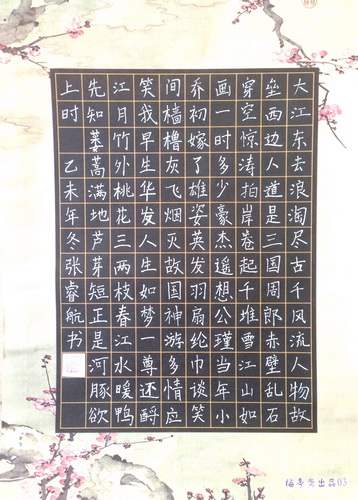 大江东去浪淘尽古千风流人物故
垒西边人道是三国周郎赤壁乱石
穿空惊涛拍岸卷起千堆雪江山如
画一时多少豪杰遥想公瑾当年小
乔初嫁了雄姿英发羽扇纶巾谈笑
间樯橹灰飞烟灭故国神游多情应
笑我早生华发人生如梦一尊还酹
江月竹外桃花三两枝春江水暖鸭
先知蒌蒿满地芦芽短正是河豚欲
上时 乙未年冬张睿航书
出品03